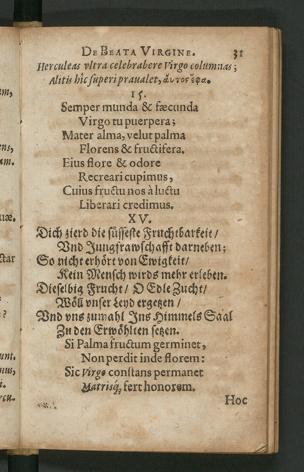 DE BEATA VIRGINE. 31
Herculeas vltra celebrabere Virgo columnas;
Alitis hîc superi praualet, ἀυτος ἔφα.
15.
Semper munda & fæcunda
Virgo tu puerpera;
Mater alma, velut palma
Florens & fructifera.
Eius flore & odore
Recreari cupimus,
Cuius fructu nos à luctu
Liberari credimus.
XV.
Dich zierd die süsseste Fruchtbarkeit /
Vnd Jungfrawschafft darneben;
So nicht erhört von Ewigkeit /
Kein Mensch wirds mehr erleben.
Dieselbig Frucht / O Edle Zucht /
Wöll vnser Leyd ergetzen /
Vnd vns zumahl Ins Himmels Saal
Zu den Erwöhlten setzen.
Si Palma fructum germinet,
Non perdit inde florem:
Sic Virgo constans permanet
Matrisq́; fert honorem.
Hoc